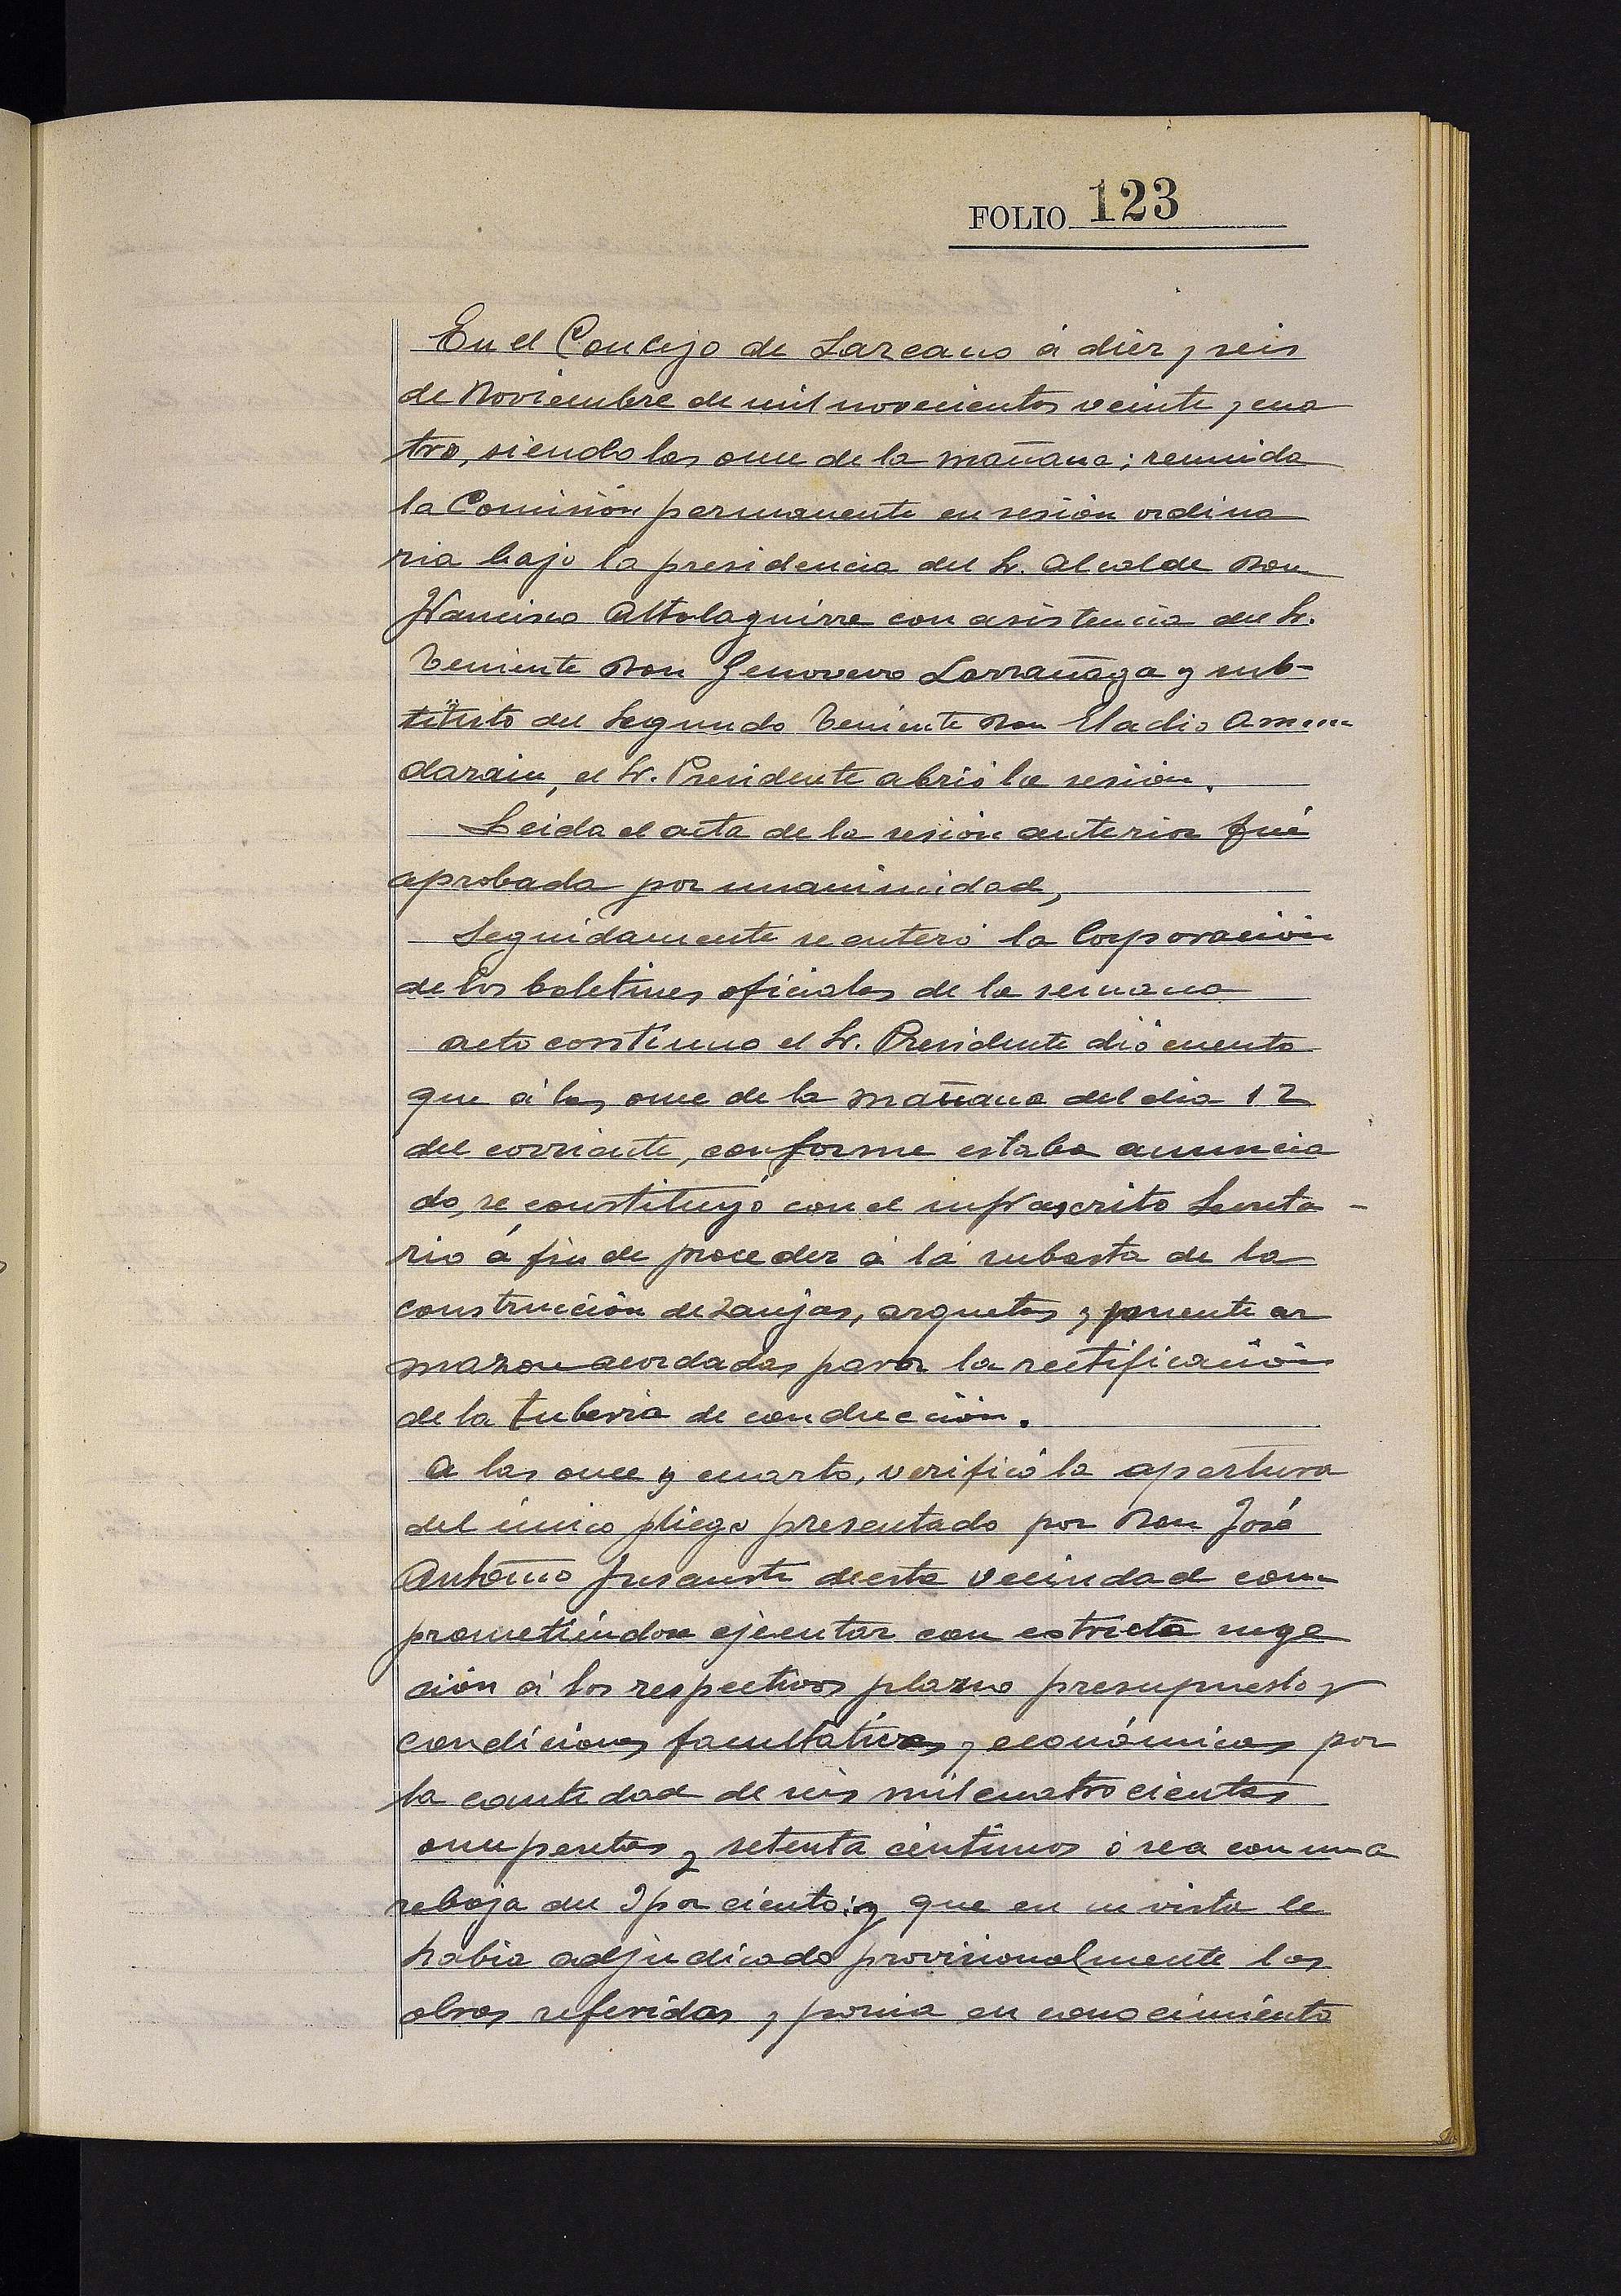 FOLIO 123
En el Concejo de Lazcano á diez y seis
de Noviembre de mil novecientos veinte y cua
tro, siendo las once de la mañana; reunida
la Comisión permanente en sesión ordina
ria bajo la presidencia del Sr. Alcalde Don
Francisco Altolaguirre con asistencia del Sr.
Teniente Don Genoveva Larrañaga y sub-
tituto del Segundo Teniente Don Eladio Amen
darain, el Sr. Presidente abrió la sesión.
Leida el acta de la sesión anterior fué
aprobada por unanimidad,
Seguidamente se enteró la Corporación
de los boletines oficiales de la semana
acto continuo el Sr. Presidente dió cuenta
que á las once de la mañana del dia 12
del corriente, conforme estaba anuncia
do, se constituyó con el infrascrito Secreta-
rio á fin de proceder á la subasta de la
construcción de zanjas, arquetas y puente ar
mazon acordadas para la rectificación
de la tuberia de conducción.
A las once y cuarto, verificó la apertura
del único pliego presentado por Don José
Antonio de esta vecindad com-
prometiéndose ejecutar con estricta suge
ción á los respectivos planos presupuesto y
condiciones facultativas y económicas por
la cantidad de seis mil cuatrocientas
once pesetas y setenta céntimos ó sea con una
rebaja del por ciento; y que en su vista le
habia adjudicado provisionalmente las
obras referidas y ponia en conocimiento